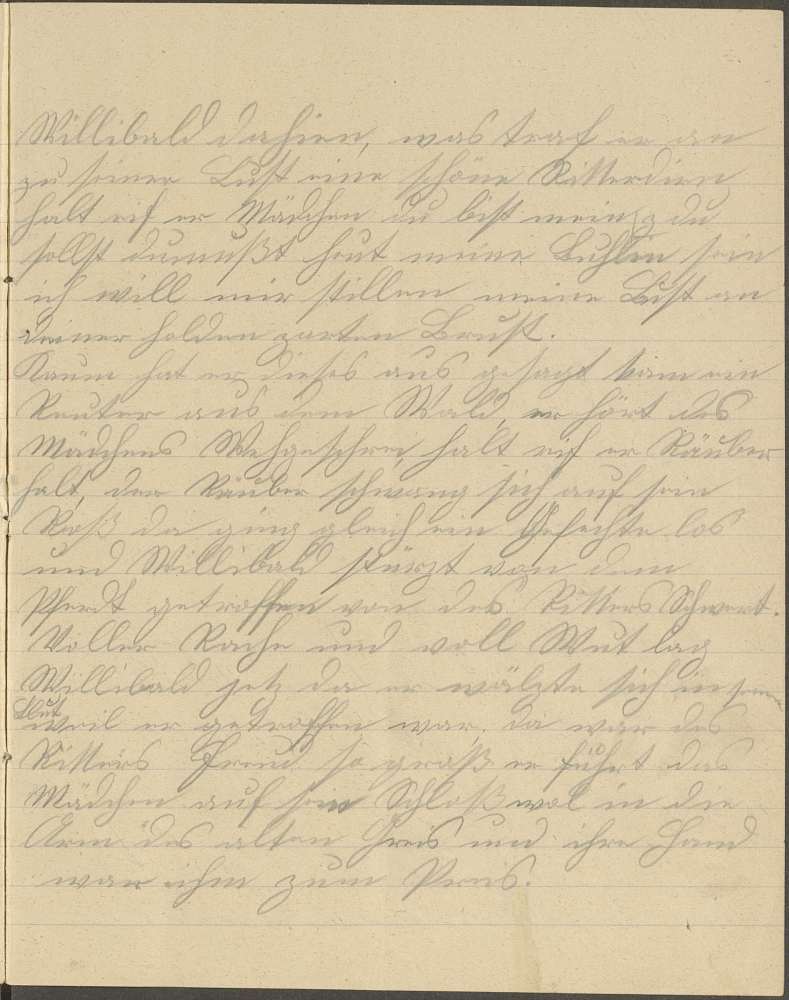 Willibald dahien, was traf er an
zu seiner Lust eine schöne Ritterdirn
halt rif er Mädchen du bist mein, du
sollst du mußt heut meine Buhlin sein
ich will mir stillen meine Lust an
deiner holden zarten Brust.
Kaum hat er dieses aus gesagt kam ein
Reuter aus dem Wald, er hört des
Mädchens Wehgeschrei, halt rif er Räuber
halt, der Räuber schwang sich auf sein
Roß da ging gleich ein Gefechte los
und Willibald stürzt von dem
Pferdt getroffen von des Ritters Schwert.
Voller Rache und voll Wut lag
Willibald jetz da er wälzte sich in sein
Blut
weil er getroffen war. da war des
Ritters Freud so groß er führt das
Mädchen auf sein Schloß wol in die
Arm des alten Greis und ihre Hand
war ihm zum Preis.